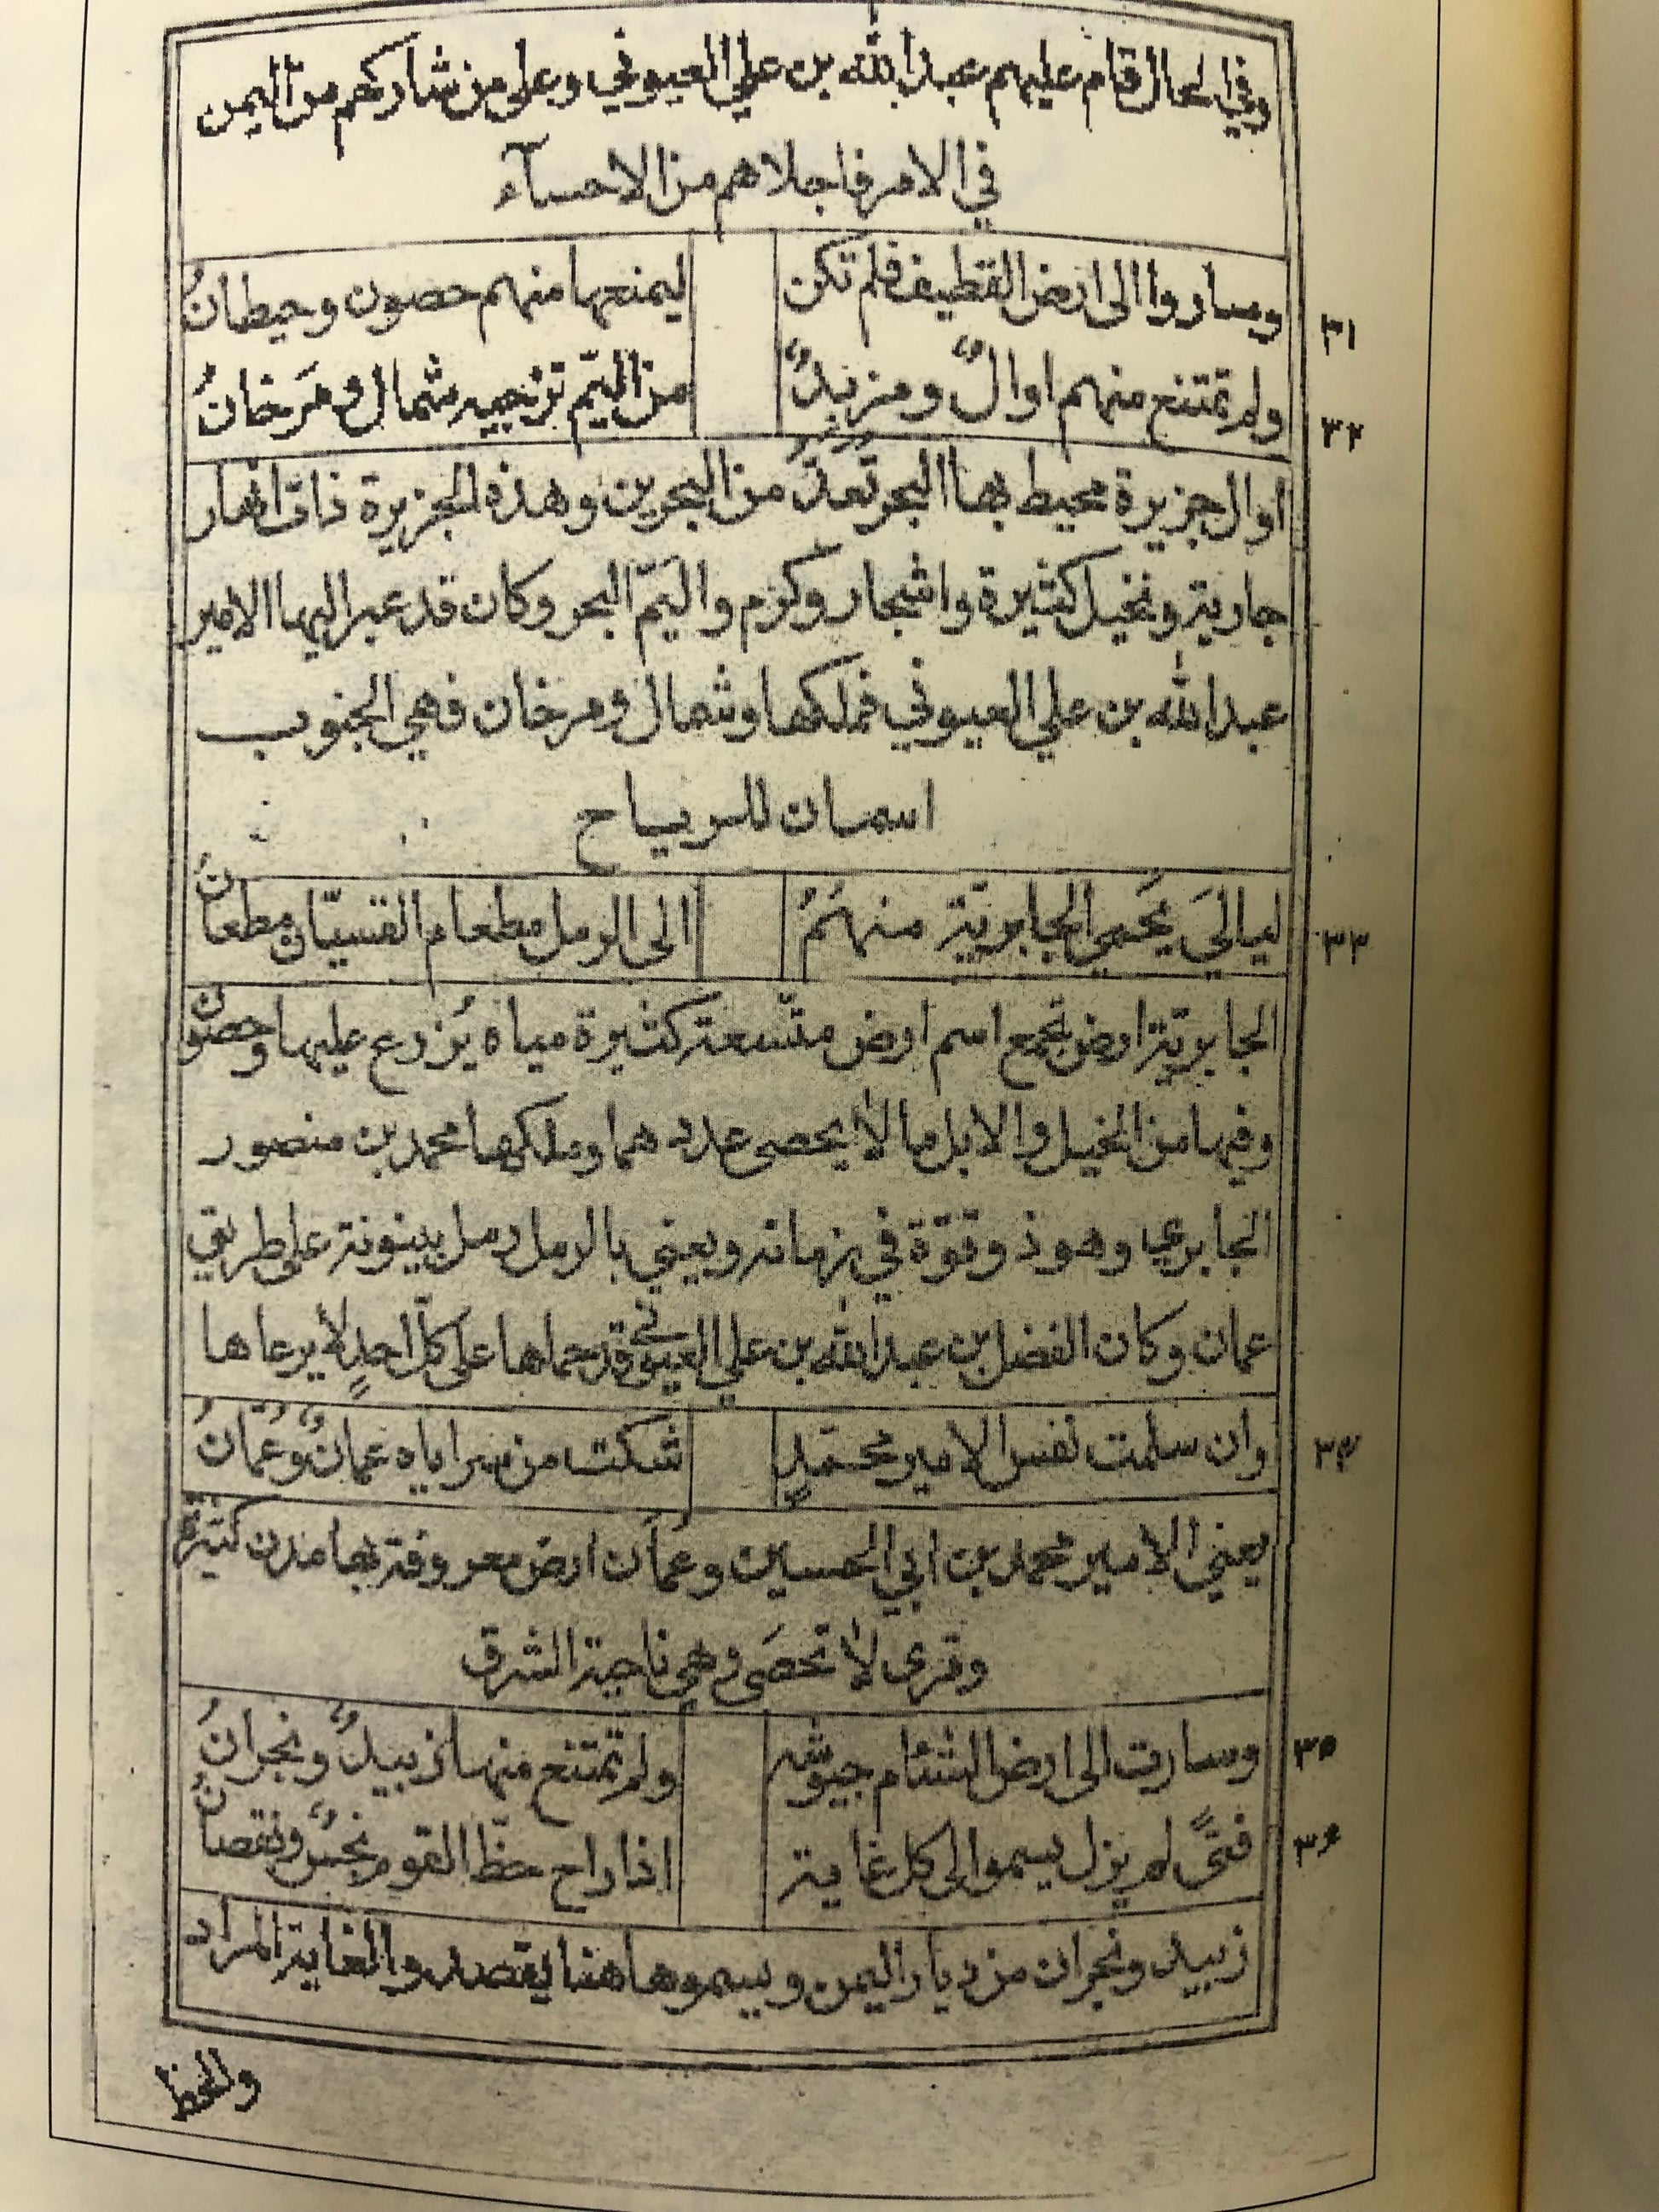 وفي الحال قام عليهم عبدالله بن علي العيوني وعلى من شاركهم من اليمن
في الامر فاجلاهم من الاحسآء
وساروا الى ارض القطيف فلم تكن ليمنعها منهم حصون وحيطانُ ٣١
ولم تمتنع منهم اوالٌ ومن اليمّ تزجيه شمال ومَرخانُ ٣٢
اوال جزيرة محيط بها البحر تُعدُّ من البحرين وهذه الجزيرة ذات انهار
جارية ونخيل كثيرة واشجار وكرم واليَمّ البحر وكان قد عبر اليها الامير
عبدالله بن علي العيوني فملكها وشمال ومرخان فهي الجنوب
اسمان للرياح
لياليَ يَحمي الجابرية منهمُ الى الرمل مطعام القسيّات مطعانُ ٣٣
الجابرية ارض تجمع اسم ارض متّسعة كثيرة مياه يُزرع عليها وحصون
وفيها من الخيل والابل ما لا يحصى عددهما وملكها محمد بن منصور
الجابري وهو ذو قوّة في زمانه ويعني بالرمل رمل بينونة على طريق
عمان وكان الفضل بن عبدالله بن علي العيوني قد حماها على كلّ احدٍ لا يرعاها
وان سلمت نفس الامير محمّدٍ شكت من سراياه عمانٌ وعُمّانُ ٣٤
يعني الامير محمد بن ابي الحسين وعُمان ارض معروفة بها مدن كثيرة
وقرى لا تحصَى وهي ناحية الشرق
وسارت الى ارض الشئام جيوشه ولم تمتنع منها زبيدٌ ونجرانُ ٣٥
فتىً لم يزل يسموا الى كل غاية اذا راح حظّ القوم نجسٌ ونقصانُ ٣٦
زبيد ونجران من ديار اليمن ويسمو هاهنا يقصد والغاية المراد
والحظ